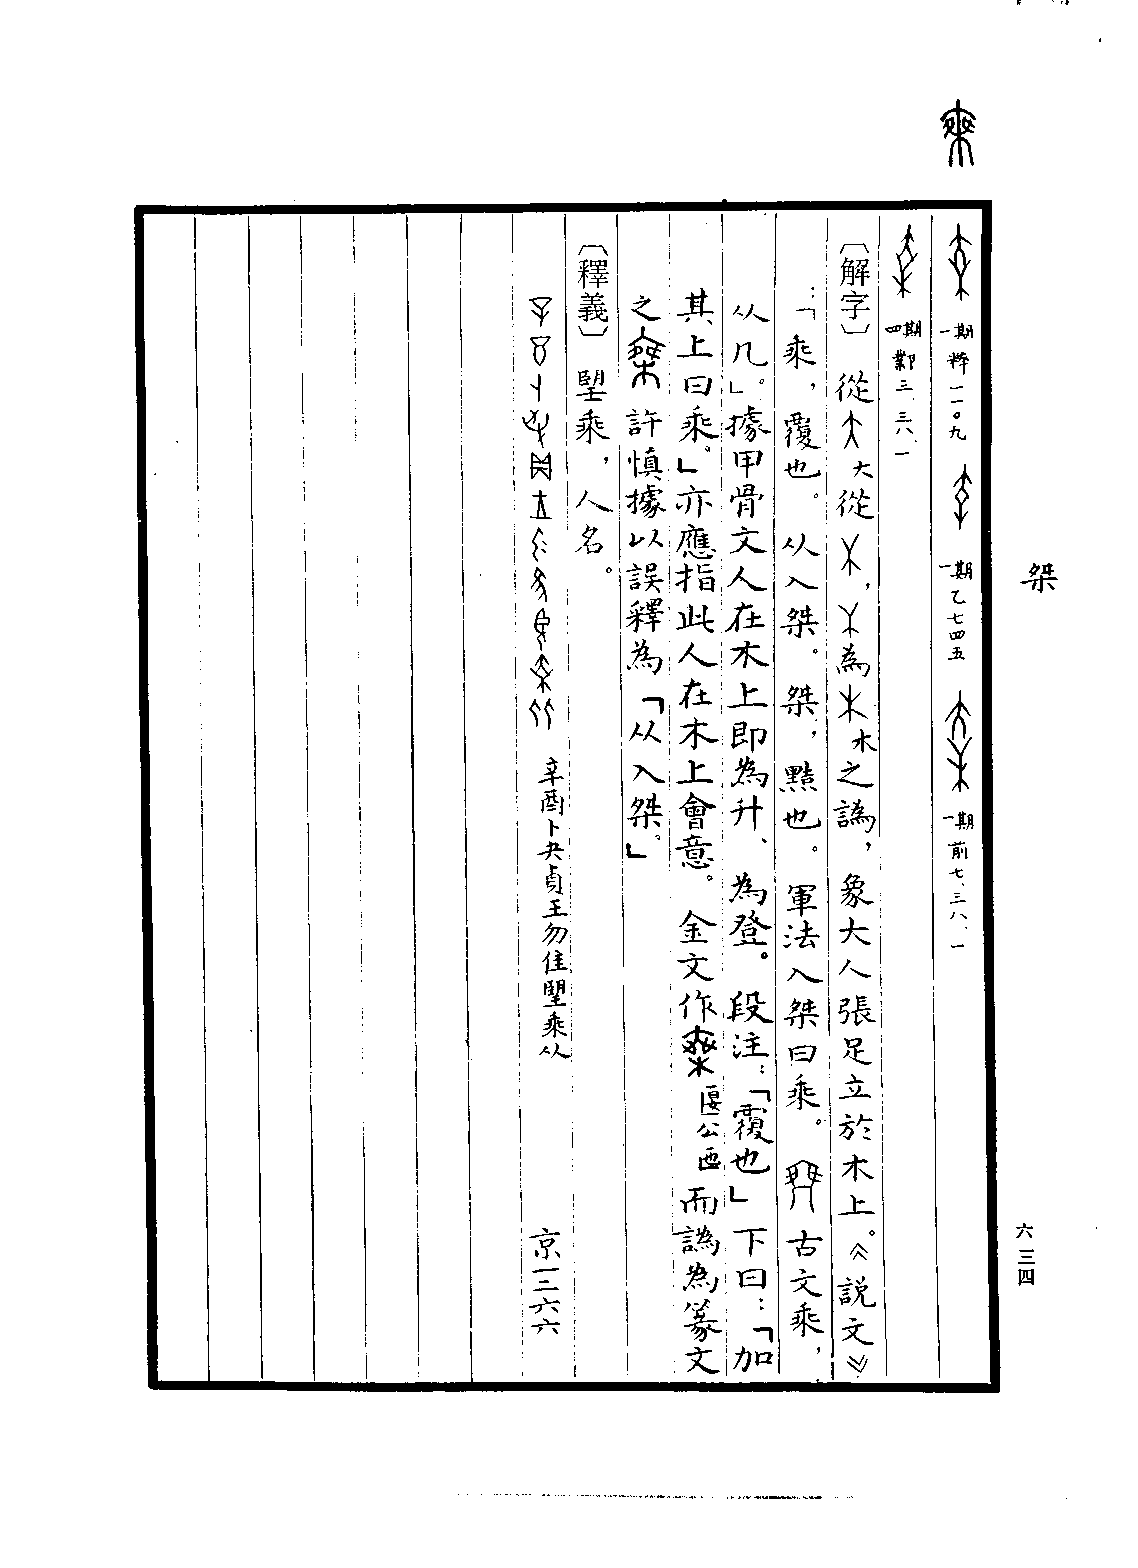 桀
一期 粹一一〇九 一期 乙七四五 一期 前七、三八、一
四期 鄴三、三八、一
〔解字〕從大從,為木之譌,象大人張足立於木上。《說文》
:「乘,覆也。从入桀。桀,黠也。軍法入桀曰乘。古文乘,
从几」。據甲骨文人在木上即為升、為登。段注:「覆也」下曰:「加
其上曰乘。」亦應指此人在木上會意。金文作 匽公匜 而譌為篆文
之 許慎據以誤釋為「从入桀。」
〔釋義〕朢乘,人名。
辛酉卜 貞王勿隹朢乘从 京一二六六
六 三四